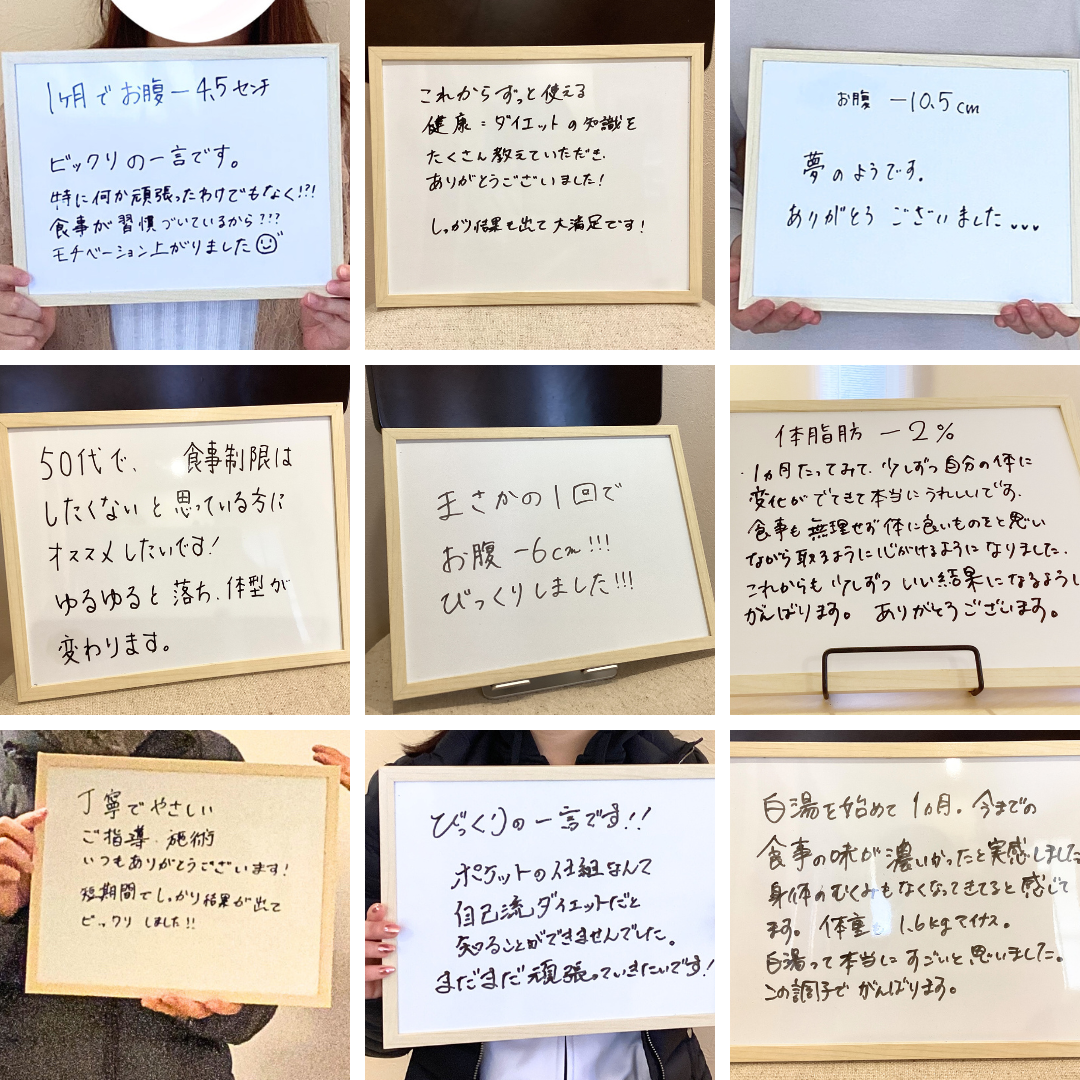 1ヶ月でお腹−4.5センチ
ビックリの一言です。
特に何か頑張ったわけでもなく!?!
食事が習慣づいているから???
モチベーション上がりました
これからずっと使える
健康=ダイエットの知識を
たくさん教えていただき、
ありがとうございました!
しっかり結果も出て大満足です!
お腹 −10.5cm
夢のようです。
ありがとうございました...
50代で、食事制限は
したくないと思っている方に
オススメしたいです!
ゆるゆると落ち、体型が
変わります。
まさかの1回で
お腹−6cm!!!
びっくりしました!!!
体脂肪 −2%
・1ヵ月たってみて、少しずつ自分の体に
変化がでてきて本当にうれしいです。
食事も無理せず体に良いものをと思い
ながら取るように心がけるようになりました。
これからも少しずついい結果になるようし
がんばります。 ありがとうございます。
丁寧でやさしい
ご指導、施術
いつもありがとうございます!
短期間でしっかり結果が出て
ビックリしました!!
びっくりの一言です!!
ポケットの仕組なんて
自己流ダイエットだと
知ることができませんでした。
まだまだ頑張っていきたいです!
白湯を始めて1ヵ月。今までの
食事の味が濃いかったと実感しました
身体のむくみもなくなってきてると感じて
ます。体重も1.6kgマイナス。
白湯って本当にすごいと思いました。
この調子でがんばります。